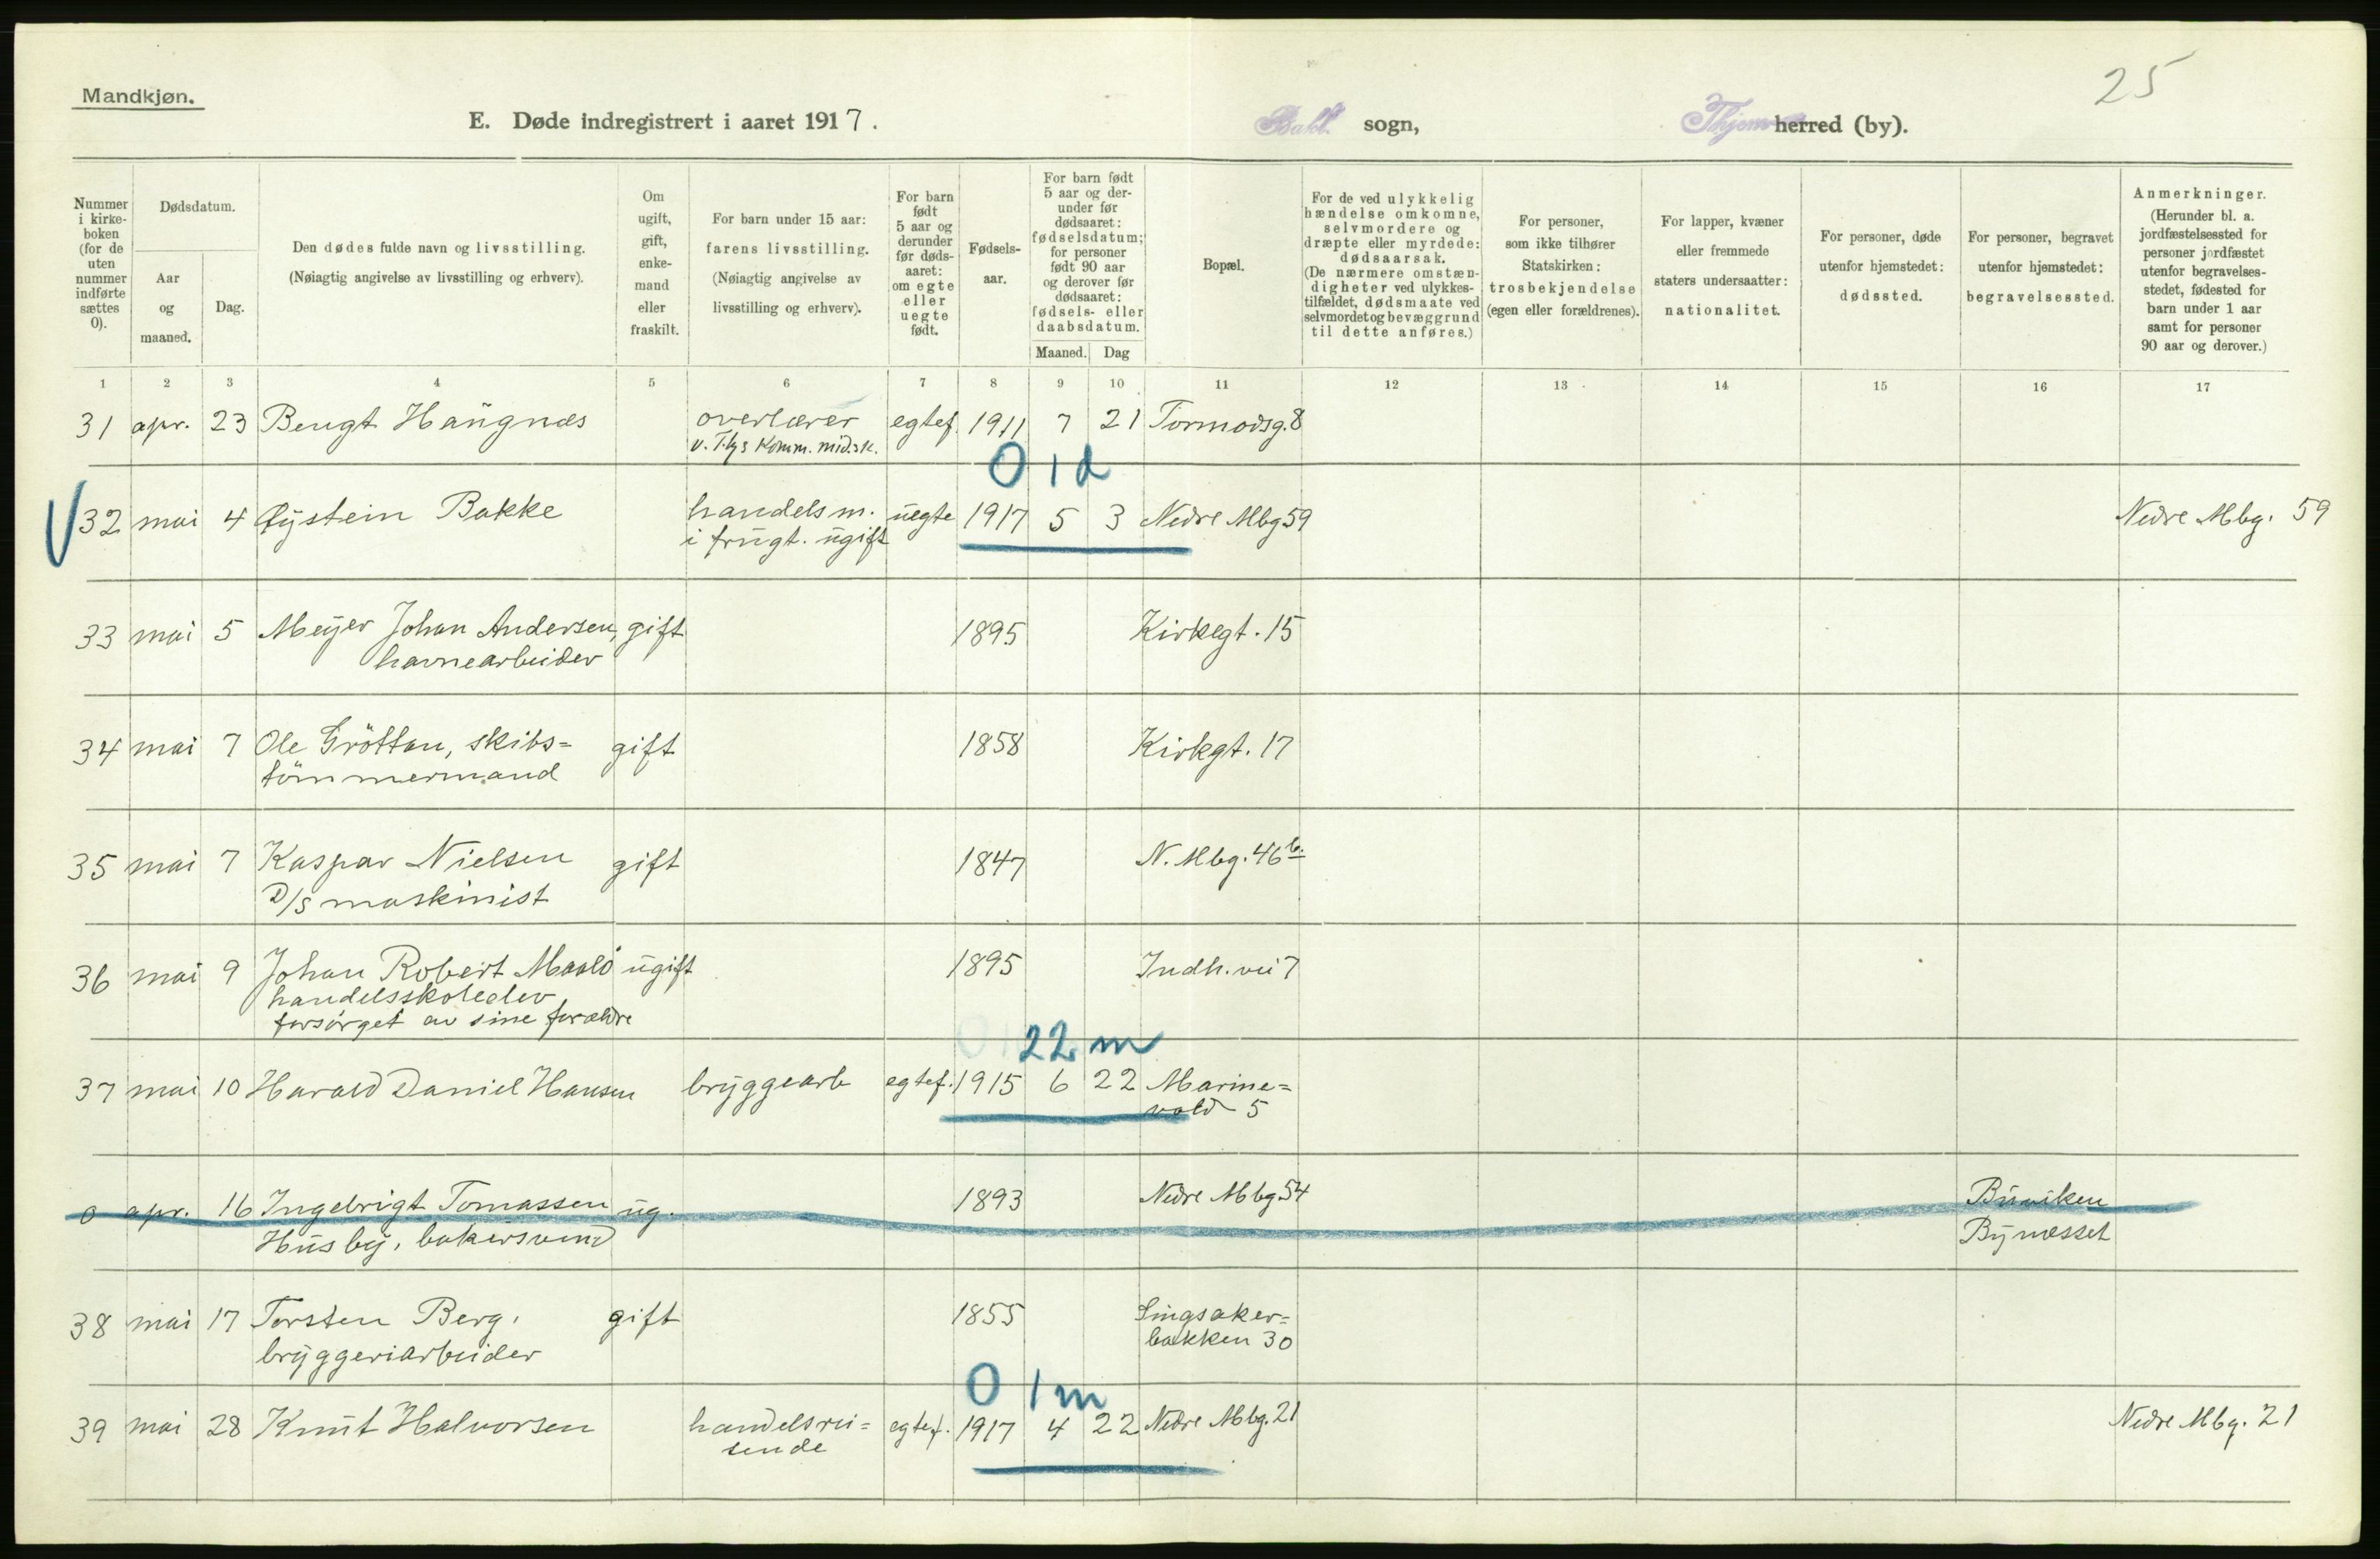 25
Mandkjøn.
E. Døde indregistrert i aaret 1917.
Bakl. sogn,
Thjem herred (by).
Nummer i kirke-boken (for de uten nummer indførte sættes 0).
Dødsdatum.
Aar og maaned.
Dag.
Den dødes fulde navn og livsstilling.
(Nøiagtig angivelse av livsstilling og erhverv).
Om ugift, gift, enke-mand eller fraskilt.
For barn under 15 aar: farens livsstilling.
(Nøiagtig angivelse av livsstilling og erhverv).
For barn født 5 aar og derunder før døds-aaret: om egte eller uegte født.
Fødsels-aar.
For barn født 5 aar og der-under før dødsaaret: fødselsdatum; for personer født 90 aar og derover før dødsaaret: fødsels- eller daabsdatum.
Maaned. Dag
Bopæl.
For de ved ulykkelig hændelse omkomne, selvmordere og dræpte eller myrdede: dødsaarsak.
(De nærmere omstæn-digheter ved ulykkes-tilfældet, dødsmaate ved selvmordet og bevæggrund til dette anføres.)
For personer, som ikke tilhører Statskirken: trosbekjendelse (egen eller forældrenes).
For lapper, kvæner eller fremmede staters undersaatter: nationalitet.
For personer, døde utenfor hjemstedet: dødssted.
For personer, begravet utenfor hjemstedet: begravelsessted.
Anmerkninger.
(Herunder bl. a. jordfæstelsessted for personer jordfæstet utenfor begravelses-stedet, fødested for barn under 1 aar samt for personer 90 aar og derover.)
1 2 3 4 5 6 7 8 9 10 11 12 13 14 15 16 17
31 apr. 23 Bengt Haugnæs overlærer egtef. 1911 7 21 Tormodsg. 8
v. T.hjs Komm. mid.sk.
0 1 d
32 mai 4 Øystein Bakke handelsm. uegte 1917 5 3 Nedre Mbg 59 Nedre Mbg. 59
i frugt. ugift
33 mai 5 Meyer Johan Andersen, gift 1895 Kirkegt. 15
havnearbeider
34 mai 7 Ole Gröttan, skibs= gift 1858 Kirkgt. 17
tömmermand
35 mai 7 Kaspar Nielsen gift 1847 N. Mbg. 46 b.
D/S maskinist
36 mai 9 Johan Robert Maalö ugift 1895 Indh. vei 7
handelsskoleelev
forsörget av sine forældre
22 m
37 mai 10 Harald Daniel Hansen bryggearb egtef. 1915 6 22 Marine=
vold 5
0 apr. 16 Ingebrigt Tomassen ug. 1893 Nedre Mbg 54 Buviken
Husby, bakersvend Bynesset
38 mai 17 Torsten Berg, gift 1855 Singsaker=
bryggeriarbeider bakken 30
0 1 m
39 mai 28 Knut Halvorsen handelsrei= egtef. 1917 4 22 Nedre Mbg. 21 Nedre Mbg. 21
sende